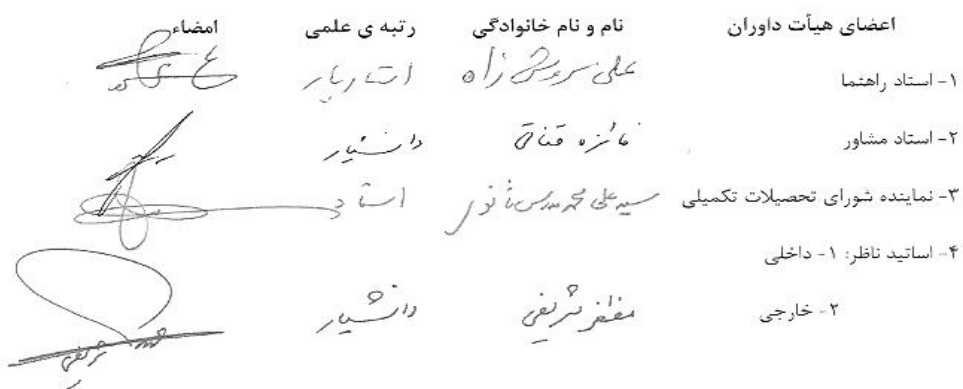 اعضای هیأت داوران نام و نام خانوادگی رتبه ی علمی امضاء
۱- استاد راهنما علی سروش زاده استادیار
۲- استاد مشاور فائزه قناتی دانشیار
۳- نماینده شورای تحصیلات تکمیلی سید علی محمد مدرس ثانوی استاد
۴- اساتید ناظر: ۱- داخلی
۲- خارجی مظفر شریفی دانشیار
شریفی